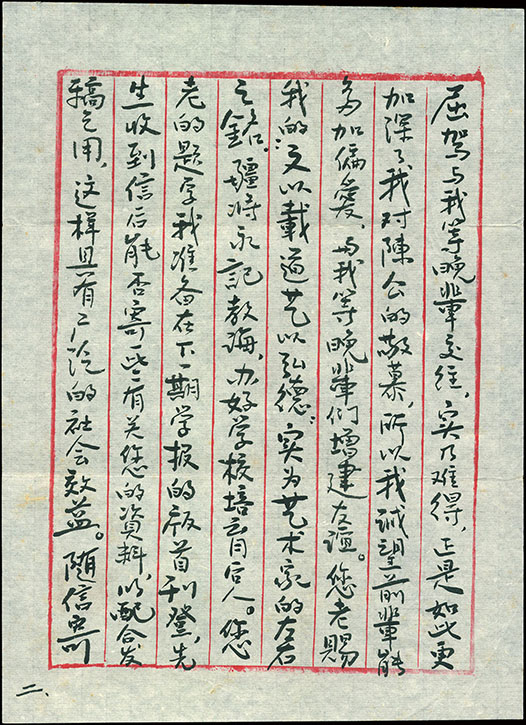 屈驾与我等晚辈交往，实乃难得，正是如此更
加深了我对陳公的敬慕，所以我诚望前辈能
多加偏爱，与我等晚辈们增建友谊。您老赐
我的“文以載道艺以弘德”实为艺术家的左右
之铭。疆将永記教诲，办好学校培育后人。您
老的题字我准备在下一期学报的版首刊登，先
生收到信后能否寄一些有关您的資料，以配合发
稿之用，这样且有广泛的社会效益。随信寄
二、